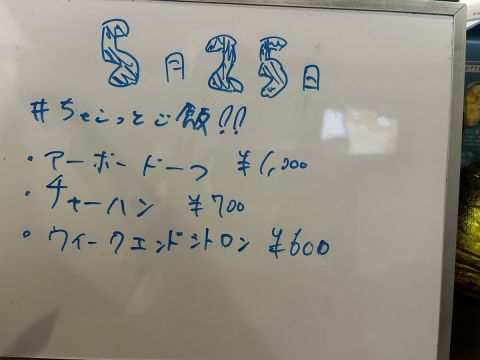 5月25日
#ちょこっとご飯!!
・アーボードーつ ¥1,000
・チャーハン ¥700
・ウィークエンドシトロン ¥600